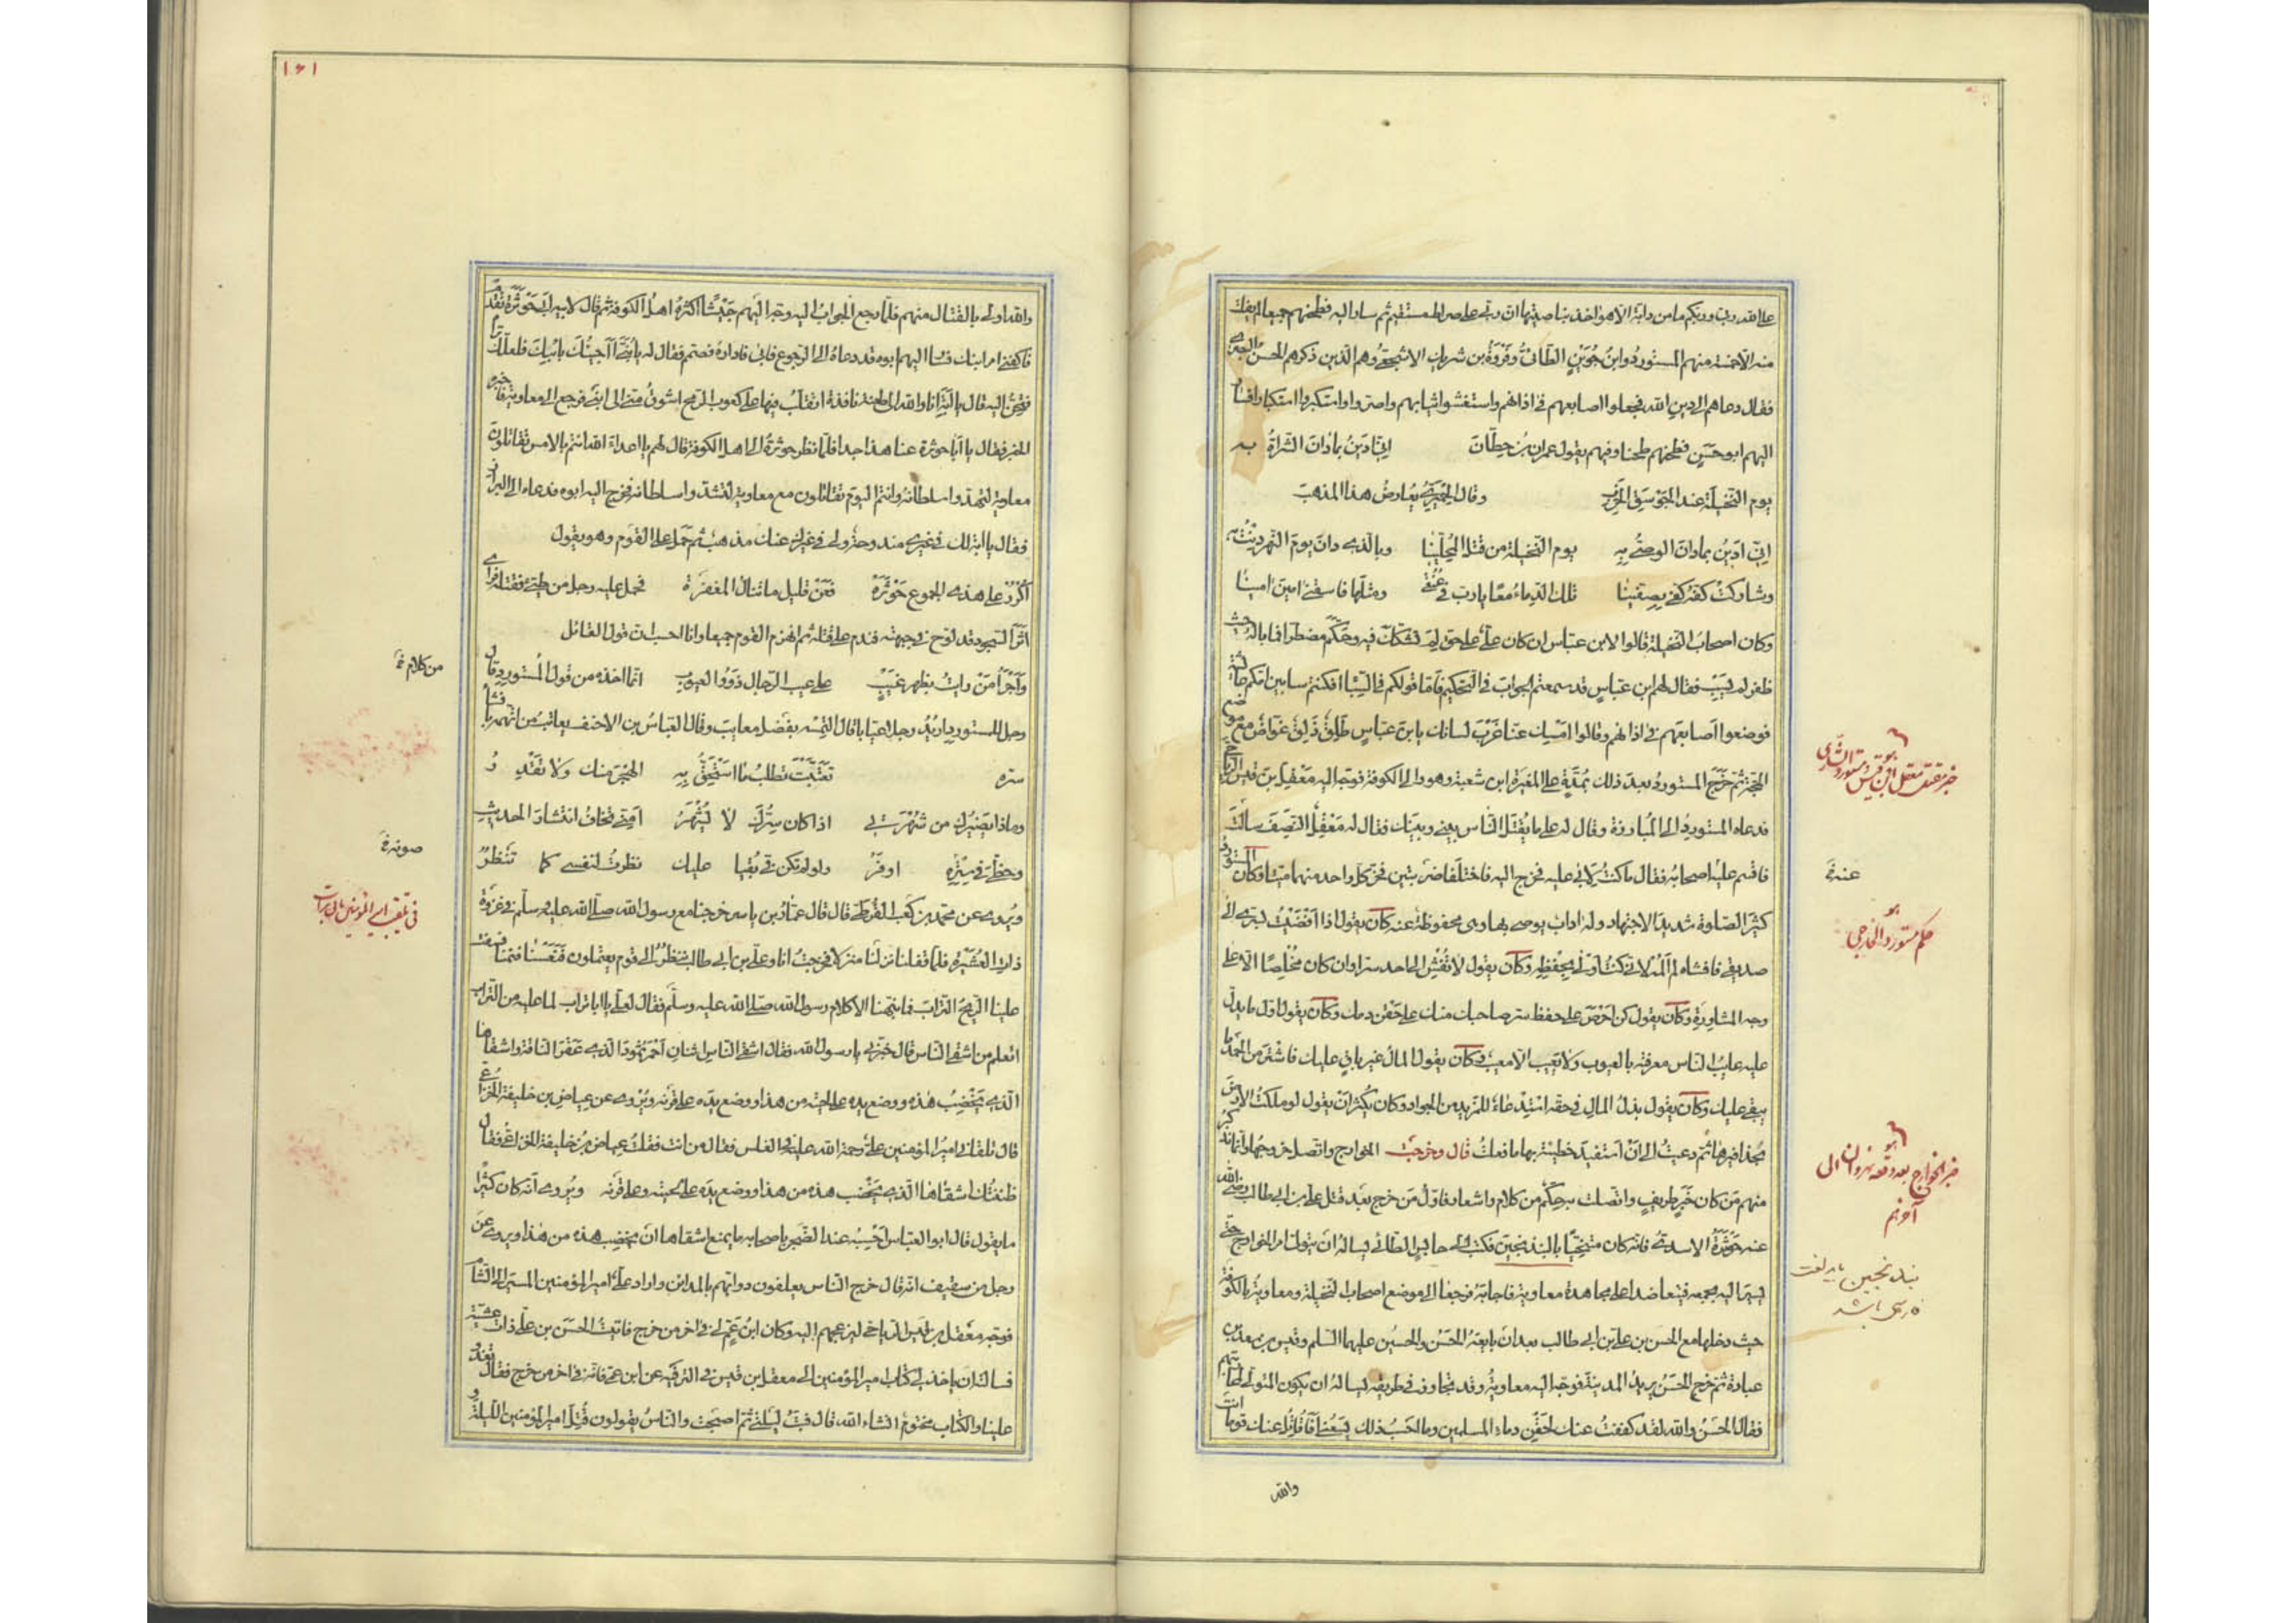 على الله ربي وربكم ما من دابة الا هو اخذ بناصيتها ان ربي على صراط مستقيم ثم سار اليه فطحنهم جميعا لم يفلت
منهم الا خمسة منهم المستورد وابن جوين الطائي وفروة بن شريك الاشجعي وهم الذين ذكرهم الحسن البصري
فقال دعاهم الى دين الله فجعلوا اصابعهم في اذانهم واستغشوا ثيابهم واصروا واستكبروا استكبارا فسار
اليهم ابو حسن فطحنهم طحنا وفيهم يقول عمران بن حطان اني ادين بما دان الشراة به
يوم النخيلة عند الجوسق الخرب وقال الحميري يعارض هذا المذهب
اني ادين بما دان الوصي به يوم النخيلة من قتل المحلينا وبالذي دان يوم النهر دنت به
وشاركت كفه كفي بصفينا تلك الدماء معا يا رب في عنقي ومثلها فاسقني امين امينا
وكان اصحاب النخيلة قالوا لابن عباس ان كان على على حق لم يشكك فيه وحكم مضطرا فما باله حيث
ظفر لم يسب فقال لهم ابن عباس قد سمعتم الجواب في التحكيم فاما قولكم في السبا افكنتم سابين امكم عائشة
فوضعوا اصابعهم في اذانهم وقالوا امسك عنا غرب لسانك يا ابن عباس طلق ذلق غواص على موضع
الحجة ثم خرج المستورد بعد ذلك بمدة على المغيرة ابن شعبة وهو والى الكوفة فوجه اليه معقل بن قيس الرياحي
فدعاه المستورد الى المبارزة وقال له على ما يقتل الناس بيني وبينك فقال له معقل النصف سالت
فاقسم عليه اصحابه فقال ما كنت لابي عليه فخرج اليه فاختلفا ضربتين فخر كل واحد منهما ميتا وكان المستورد
كثير الصلوة شديد الاجتهاد وله اداب يوصي بها وهي محفوظة عنه كان يقول اذا افضيت بسري الى
صديقي فافشاه لم المه لاني كنت اولى بحفظه وكان يقول لا تفش الى احد سرا وان كان مخلصا الا على
وجه المشاورة وكان يقول كن احرص على حفظ سر صاحبك منك على حقن دمك وكان يقول اول ما يدل
عليه عايب الناس معرفته بالعيوب ولا يعيب الا معيب وكان يقول المال غير باق عليك فاشتر من الحمد ما
يبقى عليك وكان يقول بذل المال في حقه استدعاء للمزيد من الجواد وكان يكثر ان يقول لو ملكت الارض
بحذافيرها ثم دعيت الى ان استفيد خطيئة بها ما فعلت قال وخرجت الخوارج واتصل خروجها وانما نذكر
منهم من كان خبر طريف واتصلت به حكم من كلام واشعار فاول من خرج بعد قتل علي بن ابي طالب رضي الله
عنه حوثرة الاسدي فانه كان متنحيا بالبندنيجين فكتب الى حابس الطائي يساله ان يتولى امر الخوارج حتى
يسير اليه بجمعه فيتعاضدا على مجاهدة معاوية فاجابه فرجعا الى موضع اصحاب النخيلة ومعاوية بالكوفة
حيث دخلها مع الحسن بن علي بن ابي طالب بعد ان بايعه الحسن والحسين عليهما السلم وقيس بن سعد بن
عبادة ثم خرج الحسن يريد المدينة فوجه اليه معاوية وقد تجاوز في طريقه يساله ان يكون المتولي لمحاربتهم
فقال الحسن والله لقد كففت عنك لحقن دماء المسلمين وما احسب ذلك يسعني افاقاتل عنك قوما انت
والله
خبر مقتل معقل ابن قيس ومستورد
عنه خ
حكم مستورد الخارجي
خبر الخوارج بعد وقعه نهروان الى آخرهم
بندنيجين
١٦١
والله اولى بالقتال منهم فلما رجع الجواب اليه وجه اليهم جيشا اكثره اهل الكوفة ثم قال لابيه ابي حوثرة تقدم
فاكفني امر ابنك فسار اليهم ابوه فدعاه الى الرجوع فابى فاداره فصمم فقال له يا بني اجيئك بابنك فلعلك تراه
فتحن اليه قال يا ابة انا والله الى طعنة نافذة اتقلب فيها على كعوب الرمح اشوق مني الى ابني فرجع الى معاوية فاخبره
الخبر فقال يا ابا حوثرة عتا هذا جدا فلما نظر حوثرة الى اهل الكوفة قال لهم يا اعداء الله انتم بالامس تقاتلون
معاوية لتهدوا سلطانه وانتم اليوم تقاتلون مع معاوية لتشدوا سلطانه فخرج اليه ابوه فدعاه الى البراز
فقال يا ابة لك في غيري مندوحة ولي في غيرك عنك مذهب ثم حمل على القوم وهو يقول
اكرر على هذي الجموع حوثره فعن قليل ما تنال المغفره فحمل عليه رجل من طيئ فقتله فراى
اثر السجود قد لوح في جبهته فندم على قتله ثم انهزم القوم جميعا وانا احسب ان قول القائل
واجرأ من رايت بظهر غيب على عيب الرجال ذوو العيوب انما اخذه من قول المستورد وقال
رجل للمستورد اريد رجلا عيابا قال التمسه بفضل معايب وقال العباس بن الاحنف يعاتب من اتهمه بافشاء
سره تعتبت تطلب ما استحق به الهجر منك ولا تقدر
وماذا يضيرك من شهرتي اذا كان سرك لا يشهر امني تخاف انتشار الحديث
وحظي في ستره اوفر ولو لم تكن في بقيا عليك نظرت لنفسي كما تنظر
ويروى عن محمد بن كعب القرظي قال قال عمار بن ياسر خرجنا مع رسول الله صلى الله عليه وسلم في غزوة
ذات العشيرة فلما قفلنا نزلنا منزلا فخرجت انا وعلي بن ابي طالب ننظر الى قوم يعتملون فنعسنا فنمنا فسفت
علينا الريح التراب فما نبهنا الا كلام رسول الله صلى الله عليه وسلم فقال لعلي يا ابا تراب لما عليه من التراب
اتعلم من اشقى الناس قال خبرني يا رسول الله فقال اشقى الناس اثنان احمر ثمود الذي عقر الناقة واشقاها
الذي يخضب هذه ووضع يده على لحيته من هذا ووضع يده على قرنه ويروى عن عياض بن خليفة الخزاعي
قال تلقاني امير المؤمنين علي رحمة الله عليه في الغلس فقال من انت فقلت عياض بن خليفة الخزاعي فقال
ظننتك اشقاها الذي يخضب هذه من هذا ووضع يده على لحيته وعلى قرنه ويروى انه كان كثيرا
ما يقول قال ابو العباس احسبه عند الضجر باصحابه ما يمنع اشقاها ان يخضب هذه من هذا ويروى عن
رجل من سقيف انه قال خرج الناس يعلفون دوابهم بالمدائن واراد علي امير المؤمنين المسير الى الشام
فوجه معقل بن قيس الرياحي ليزعجهم اليه وكان ابن عم لي في اخر من خرج فاتيت الحسن بن علي ذات عشية
فسالته ان ياخذ لي كتاب امير المؤمنين الى معقل بن قيس في الترفيه عن ابن عمي فانه في اخر من خرج فقال تغدو
علينا والكتاب مختوم انشاء الله قال فبت ليلتي ثم اصبحت والناس يقولون قتل امير المؤمنين الليلة
من كلام خ
صونه خ
في تلقيب امير المؤمنين بابي تراب